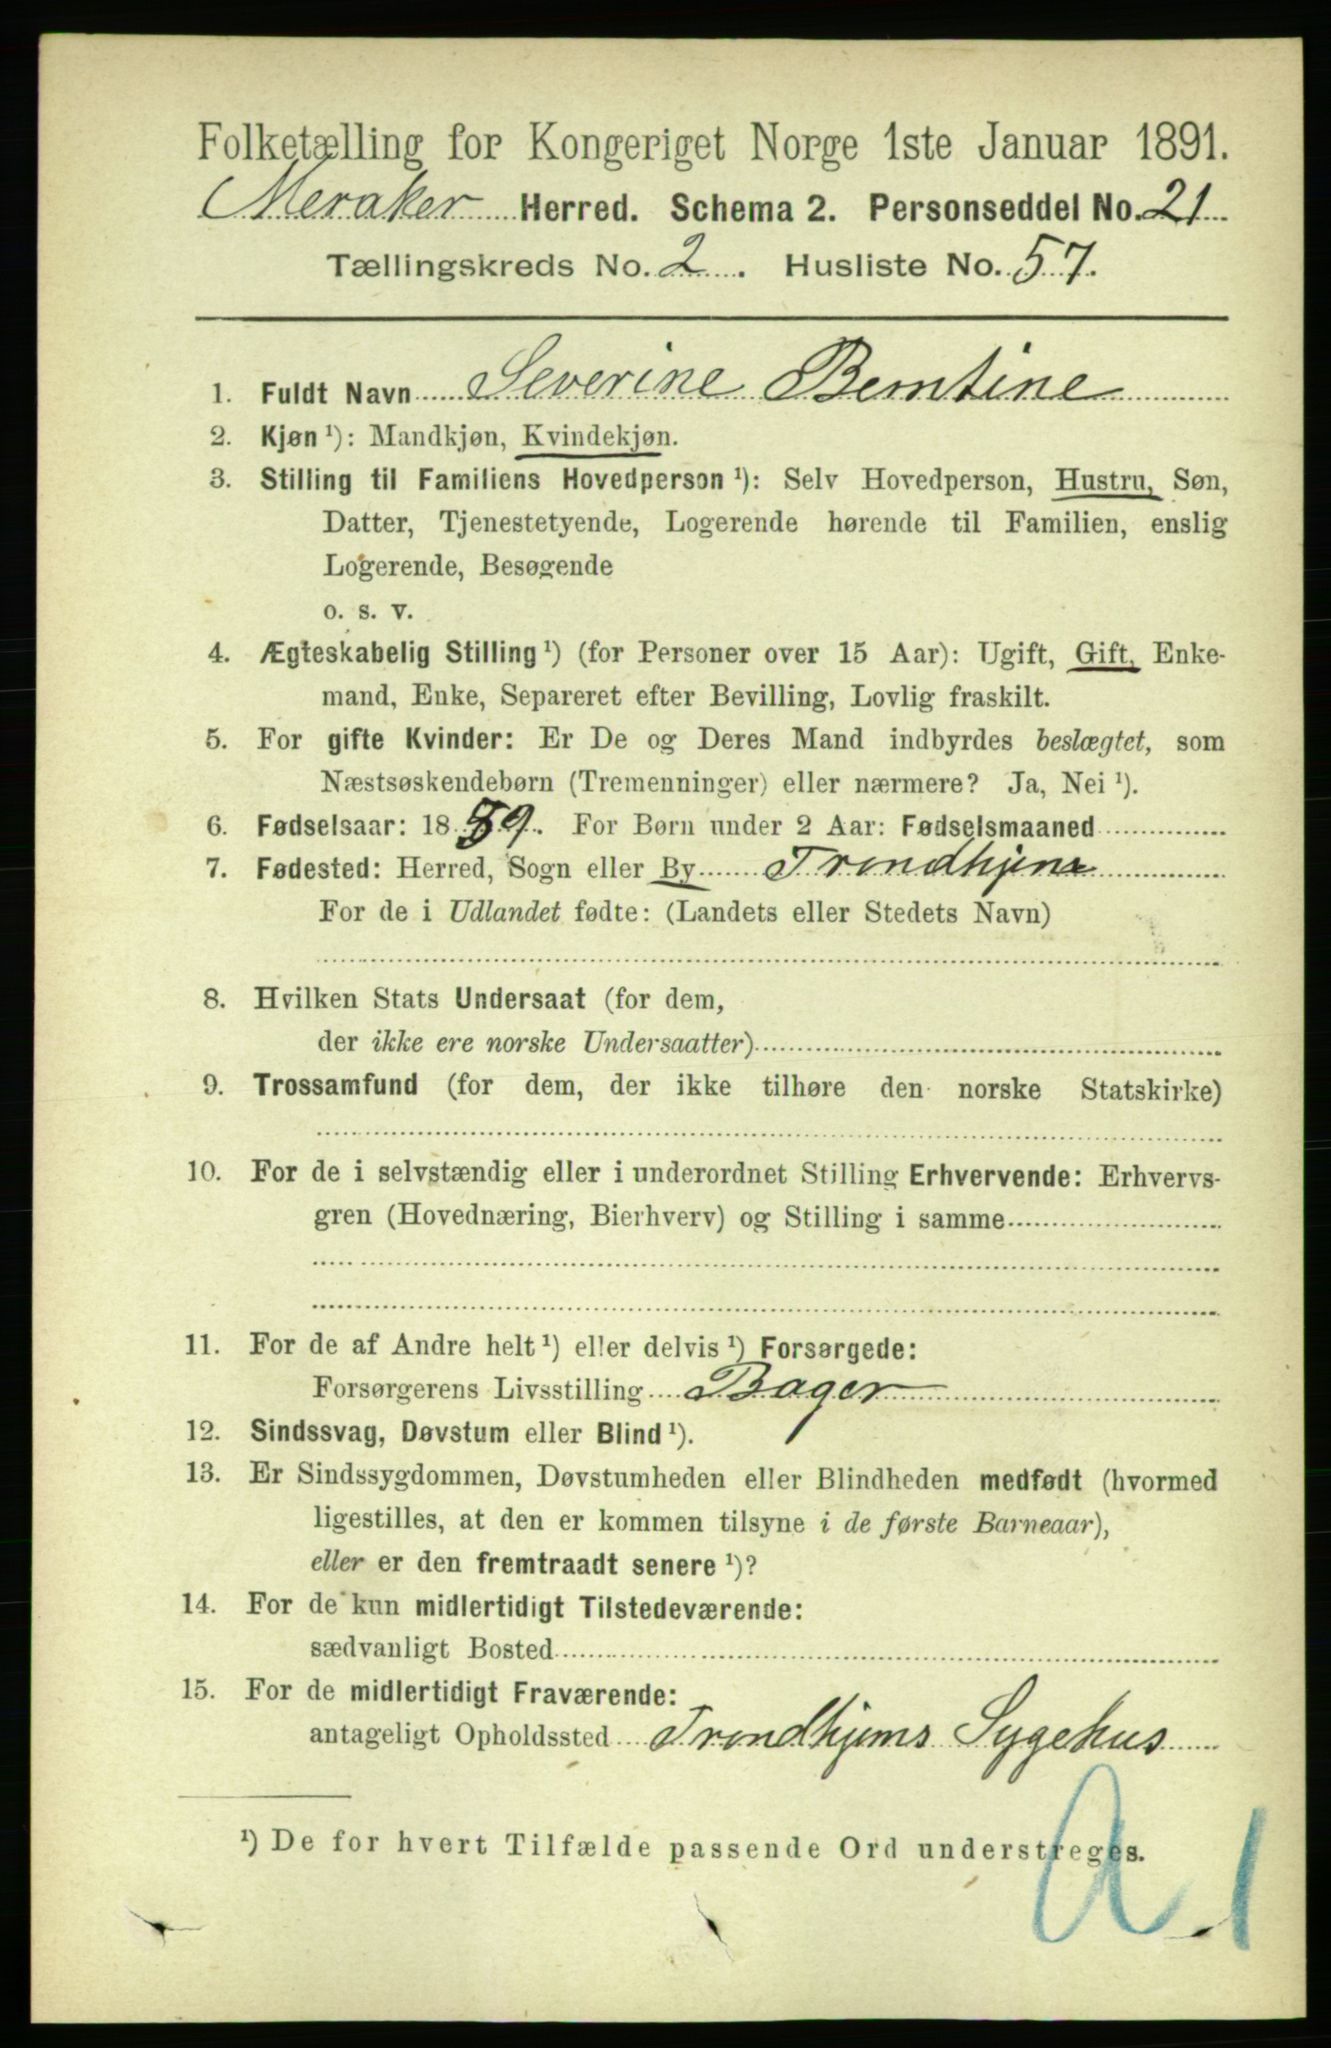 Folketælling for Kongeriget Norge 1ste Januar 1891.
Meraker Herred. Schema 2. Personseddel No. 21
Tællingskreds No. 2. Husliste No. 57.
1. Fuldt Navn Severine Berntine
2. Kjøn ¹): Mandkjøn, Kvindekjøn.
3. Stilling til Familiens Hovedperson ¹): Selv Hovedperson, Hustru, Søn,
Datter, Tjenestetyende, Logerende hørende til Familien, enslig
Logerende, Besøgende
o. s. v.
4. Ægteskabelig Stilling ¹) (for Personer over 15 Aar): Ugift, Gift, Enke-
mand, Enke, Separeret efter Bevilling, Lovlig fraskilt.
5. For gifte Kvinder: Er De og Deres Mand indbyrdes beslægtet, som
Næstsøskendebørn (Tremenninger) eller nærmere? Ja, Nei ¹).
6. Fødselsaar: 1859. For Børn under 2 Aar: Fødselsmaaned
7. Fødested: Herred, Sogn eller By Trondhjem
For de i Udlandet fødte: (Landets eller Stedets Navn)
8. Hvilken Stats Undersaat (for dem,
der ikke ere norske Undersaatter)
9. Trossamfund (for dem, der ikke tilhøre den norske Statskirke)
10. For de i selvstændig eller i underordnet Stilling Erhvervende: Erhvervs-
gren (Hovednæring, Bierhverv) og Stilling i samme
11. For de af Andre helt ¹) eller delvis ¹) Forsørgede:
Forsørgerens Livsstilling Bager
12. Sindssvag, Døvstum eller Blind ¹).
13. Er Sindssygdommen, Døvstumheden eller Blindheden medfødt (hvormed
ligestilles, at den er kommen tilsyne i de første Barneaar),
eller er den fremtraadt senere ¹)?
14. For de kun midlertidigt Tilstedeværende:
sædvanligt Bosted
15. For de midlertidigt Fraværende:
antageligt Opholdssted Trondhjems Sygehus
¹) De for hvert Tilfælde passende Ord understreges.